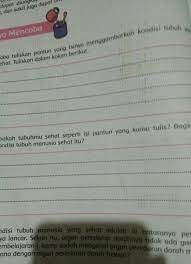 dapat diungkap
dan sakit juga dapat
yo Mencoba
coba tuliskan pantun yang isinya menggambarkan kondisi tubuh
sehat. Tuliskan dalam kolom berikut.
pakah tubuhmu sehat seperti isi pantun yang kamu tulis? Bagai
ondisi tubuh manusia sehat itu?
ndisi tubuh manusia yang sehat adalah di antaranya
ya lancar. Selain itu, organ peredaran darahnya tidak ada
embelajaran kamu sudah mengenal organ peredaran darah
ana dengan organ peredaran darah hewan?